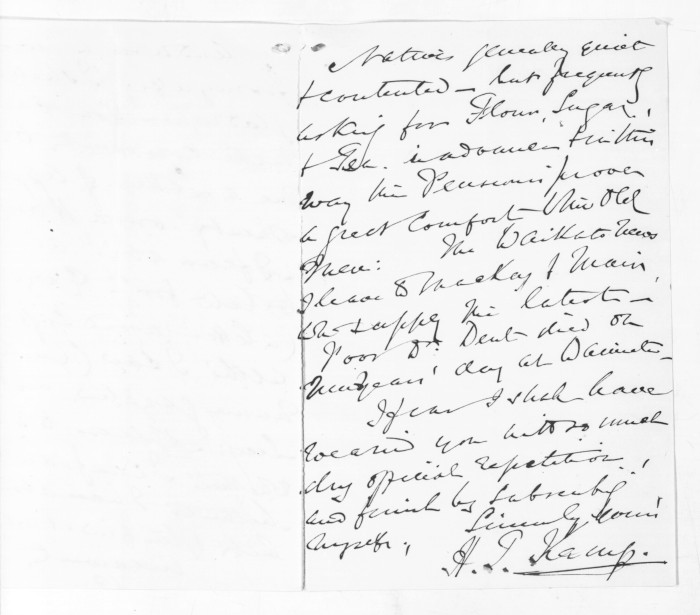 Natives generally quiet
& contented — but frequently
asking for Flour, Sugar,
& Tea. in advance & in this
way the Pensions prove
a great comfort to the Old
Men: The Waikato News
I leave to Mackay & Mair,
to supply the latest —
Poor Dr. Dent died on
New Years' day at Waimate —
I fear I shall have
wearied you with so much
dry official repetition,
and finish by subscribg
myself, Sincerely Yours
H. T. Kemp.